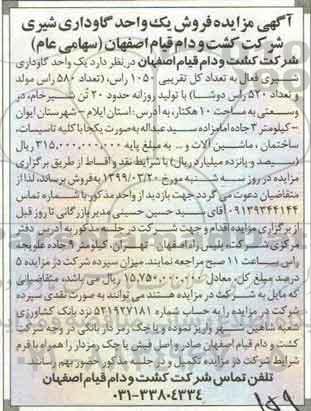 آگهی مزایده فروش یک واحد گاوداری شیری
شرکت کشت و دام قیام اصفهان (سهامی عام)
شرکت کشت و دام قیام اصفهان در نظر دارد یک واحد گاوداری
شیری فعال به تعداد کل تقریبی ۱۰۵۰ راس، (تعداد ۵۸۰ راس مولد
و تعداد ۵۲۰ راس دوشا) با تولید روزانه حدود ۲۰ تن شیرخام، در
وسعتی به مساحت ۱۰ هکتار، به آدرس: استان ایلام - شهرستان ایوان
- کیلومتر ۳ جاده امامزاده سید عبداله به صورت یکجا با کلیه تاسیسات،
ساختمان، ماشین آلات و... به مبلغ پایه ۳۱۵,۰۰۰,۰۰۰,۰۰۰ ریال
(سیصد و پانزده میلیارد ریال) با شرایط نقد و اقساط از طریق برگزاری
مزایده در روز سه شنبه مورخ ۱۳۹۹/۰۳/۲۰ به فروش برساند، لذا از
متقاضیان دعوت می گردد جهت بازدید از واحد مذکور با شماره تماس
۰۹۱۳۹۳۴۴۱۴۴ آقای سید حسین حسینی مدیر بازرگانی تا روز قبل
از برگزاری مزایده اقدام و جهت شرکت در جلسه مذکور به آدرس دفتر
مرکزی شرکت، پلیس راه اصفهان - تهران، کیلومتر ۹ جاده علویجه
راس ساعت ۱۱ صبح مراجعه نمایند. میزان سپرده شرکت در مزایده ۵
درصد مبلغ کل، معادل ۱۵,۷۵۰,۰۰۰,۰۰۰ ریال می باشد، متقاضیانی
که مایل به شرکت در مزایده هستند می توانند به صورت نقدی سپرده
شرکت در مزایده را به حساب شماره ۵۲۱۹۲۷۱۸۱ نزد بانک کشاورزی
شعبه شاهین شهر واریز نموده و یا چک رمز دار بانکی در وجه شرکت
کشت و دام قیام اصفهان صادر و اصل فیش یا چک رمزدار را همراه با فرم
شرایط شرکت در مزایده تکمیل و در جلسه مذکور حضور بهم رسانند.
تلفن تماس شرکت کشت و دام قیام اصفهان
۰۳۱-۳۳۸۰۴۳۳۴